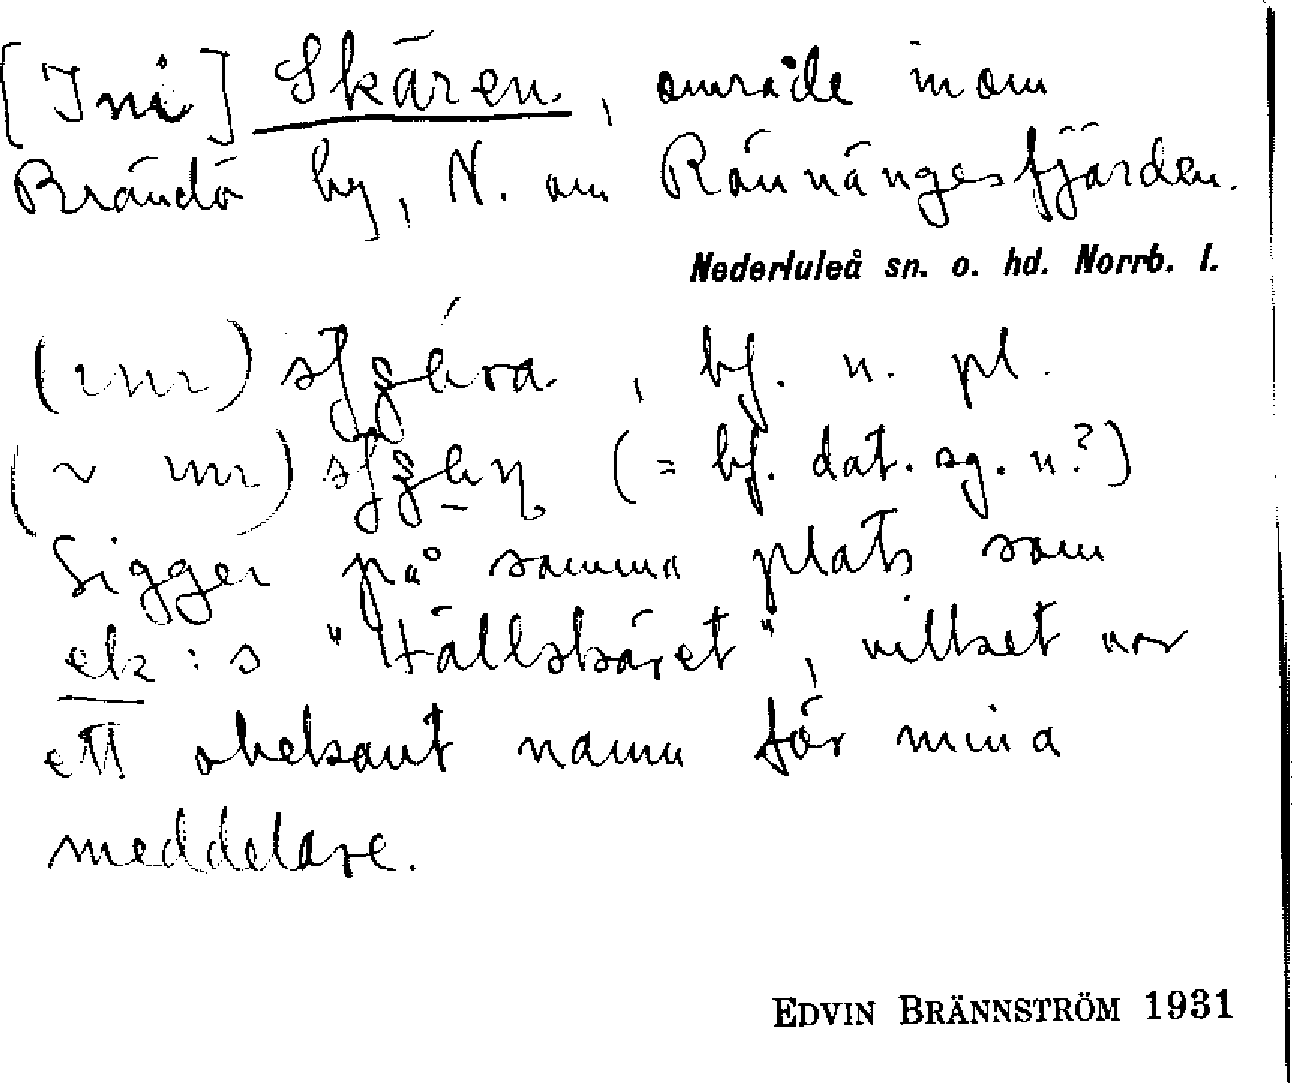 [Inå] Skären, område inom
Brändö by, N. om Rönnängesfjärden.
Nederluleå sn. o. hd. Norrb. l.
, bf. n. pl.
(= bf. dat. sg. n.?)
Ligger på samma plats som
ek:s "Hällskäret", vilket var
ett obekant namn för mina
meddelare.
EDVIN BRÄNNSTRÖM 1931